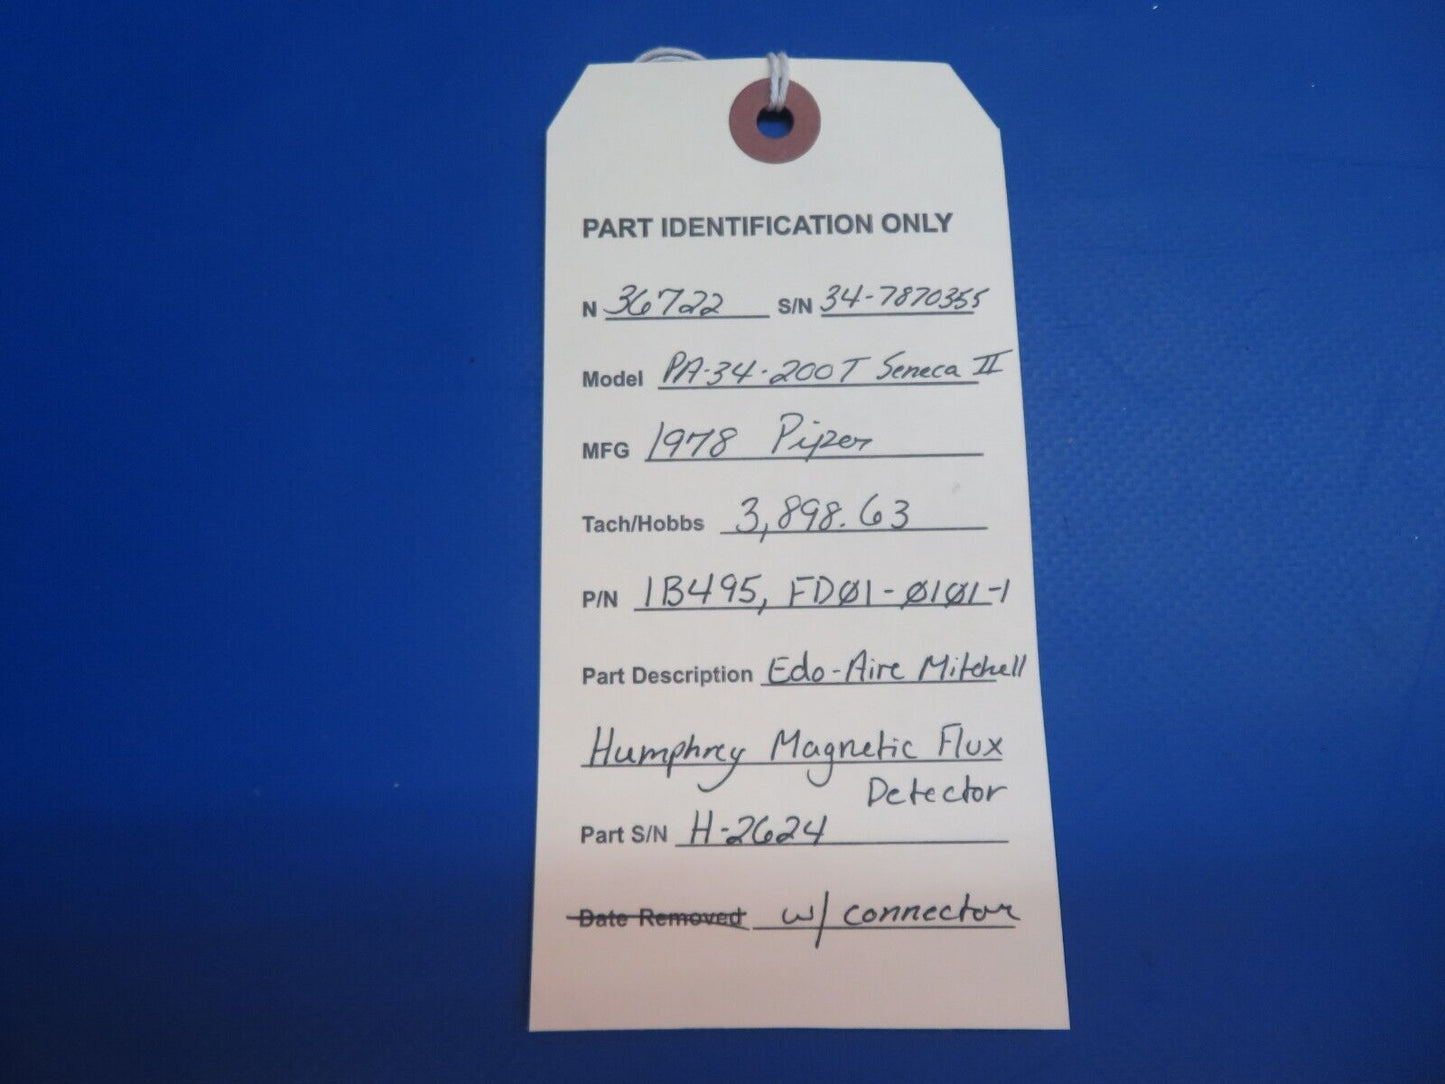 PART IDENTIFICATION ONLY
N 36722 S/N 34-7870355
Model PA-34-200T Seneca II
MFG 1978 Piper
Tach/Hobbs 3,898.63
P/N 1B495, FDØ1-Ø1Ø1-1
Part Description Edo-Aire Mitchell
Humphrey Magnetic Flux
Detector
Part S/N H-2624
Date Removed w/ connector